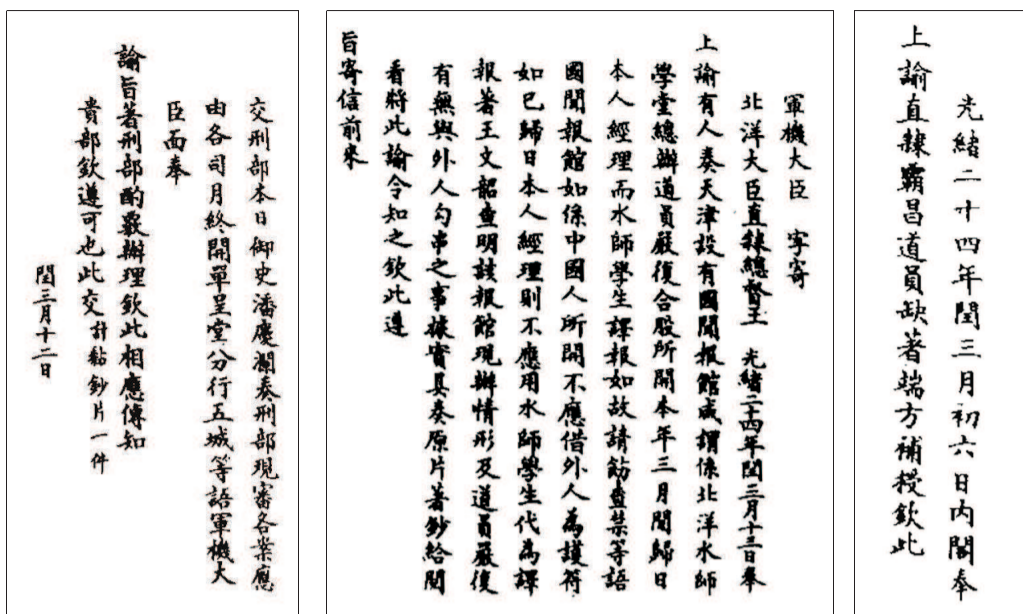 光緒二十四年閏三月初六日內閣奉
上諭直隸霸昌道員缺著端方補授欽此
軍機大臣　字寄
北洋大臣直隸總督王　光緒二十四年閏三月十三日奉
上諭有人奏天津設有國聞報館咸謂係北洋水師
學堂總辦道員嚴復合股所開本年三月間歸日
本人經理而水師學生譯報如故請飭查禁等語
國聞報館如係中國人所開不應借外人為護符
如已歸日本人經理則不應用水師學生代為譯
報著王文韶查明該報館現辦情形及道員嚴復
有無與外人勾串之事據實具奏原片著鈔給閱
看將此諭令知之欽此遵
旨寄信前來
交刑部本日御史潘慶瀾奏刑部現審各案應
由各司月終開單呈堂分行五城等語軍機大
臣面奉
諭旨著刑部酌覈辦理欽此相應傳知
貴部欽遵可也此交計黏鈔片一件
閏三月十二日